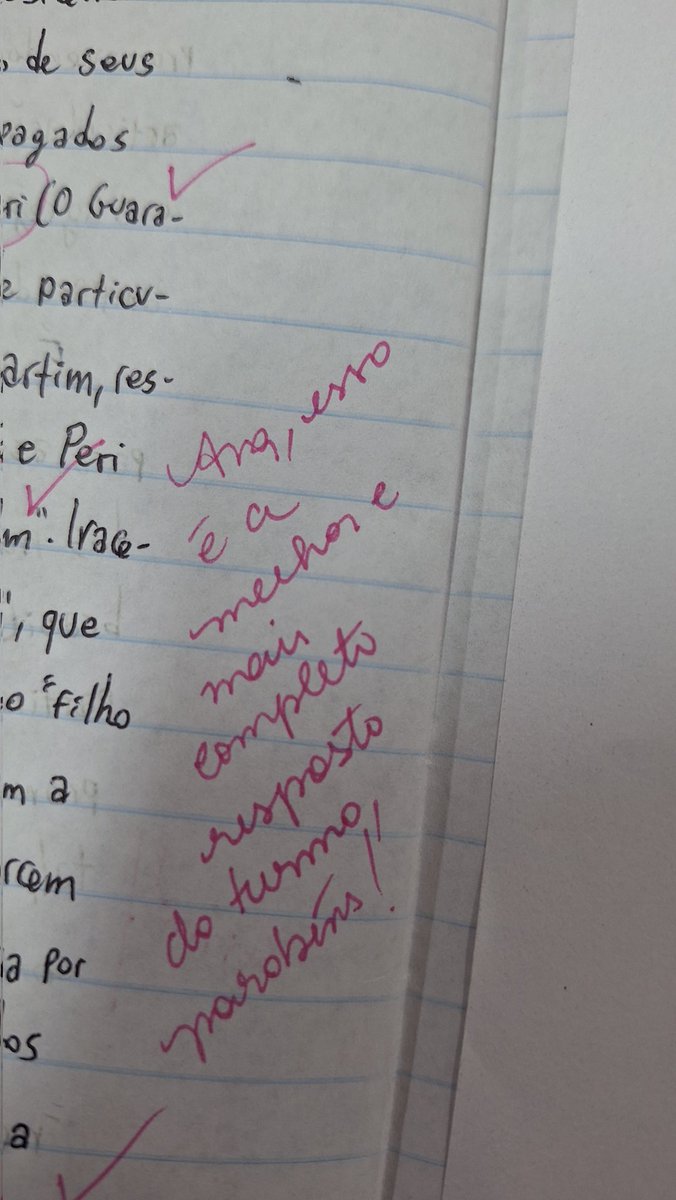 , de seus
pagados
ri (O Guara-
e particu-
artim, res-
e Peri
m". Irace-
", que
o "filho
m a
rcem
ia por
os
a
Ana, essa
é a
melhor e
mais
completa
resposta
da turma,
parabéns!